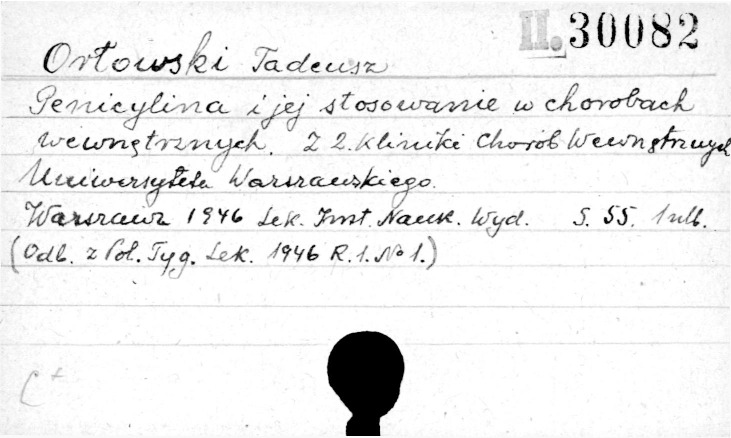 II.30082
Orłowski Tadeusz
Penicylina i jej stosowanie w chorobach
wewnętrznych. Z 2. Kliniki Chorób Wewnętrznych
Uniwersytetu Warszawskiego.
Warszawa 1946 Lek. Inst. Nauk. Wyd. S. 55. 1 nlb.
(Odb. z Pol. Tyg. Lek. 1946 R.1. No 1.)